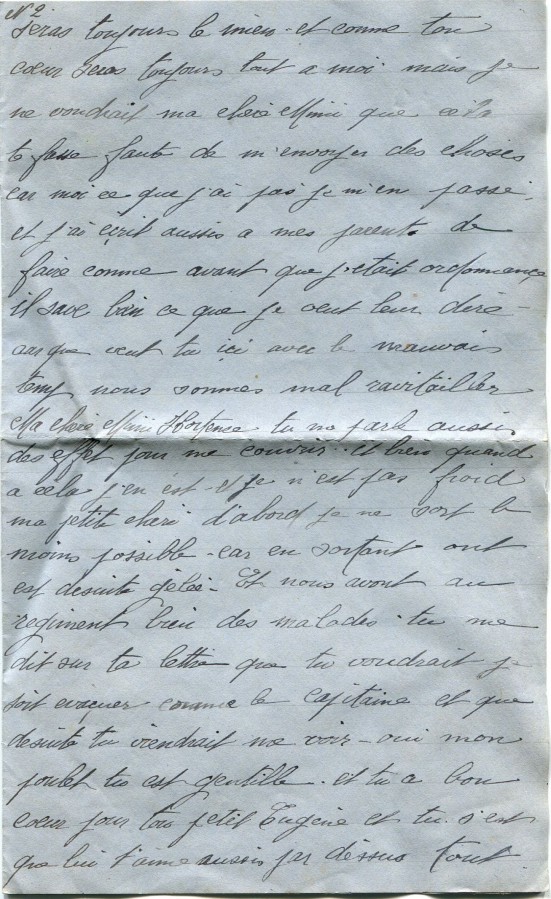 N 2
seras toujours le mien - et comme ton
cœur seras toujours tout a moi mais je
ne voudrait ma chère Mimi que cela
te fasse faute de m'envoyer des choses
car moi ce que j'ai pas je m'en passe.
et j'ai écrit aussis a mes parents de
faire comme avant que j'etait ordonnance
il save bien ce que je veut leur dire -
car que veut tu içi avec le mauvais
temp nous sommes mal ravitailler
Ma chère Mimi Hortence tu me parle aussis
des effet pour me couvrir. et bien quand
a cela j'en est - et je n'est pas froid
ma petite cheri d'abord je ne sort le
moins possible - car en sortant ont
est desuite gélée - Et nous avont au
regiment bien des malades. tu me
dit sur ta lettre que tu voudrait je
soit evaquer comme le capitaine et que
desuite tu viendrait me voir - oui mon
poulet tu est gentille. et tu a bon
cœur pour ton petit Eugène et tu s'est
que lui t'aime aussis par dessus tout.